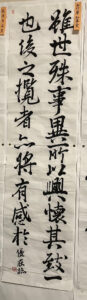 雖世殊事異所以興懷其致一
也後之覽者亦將有感於